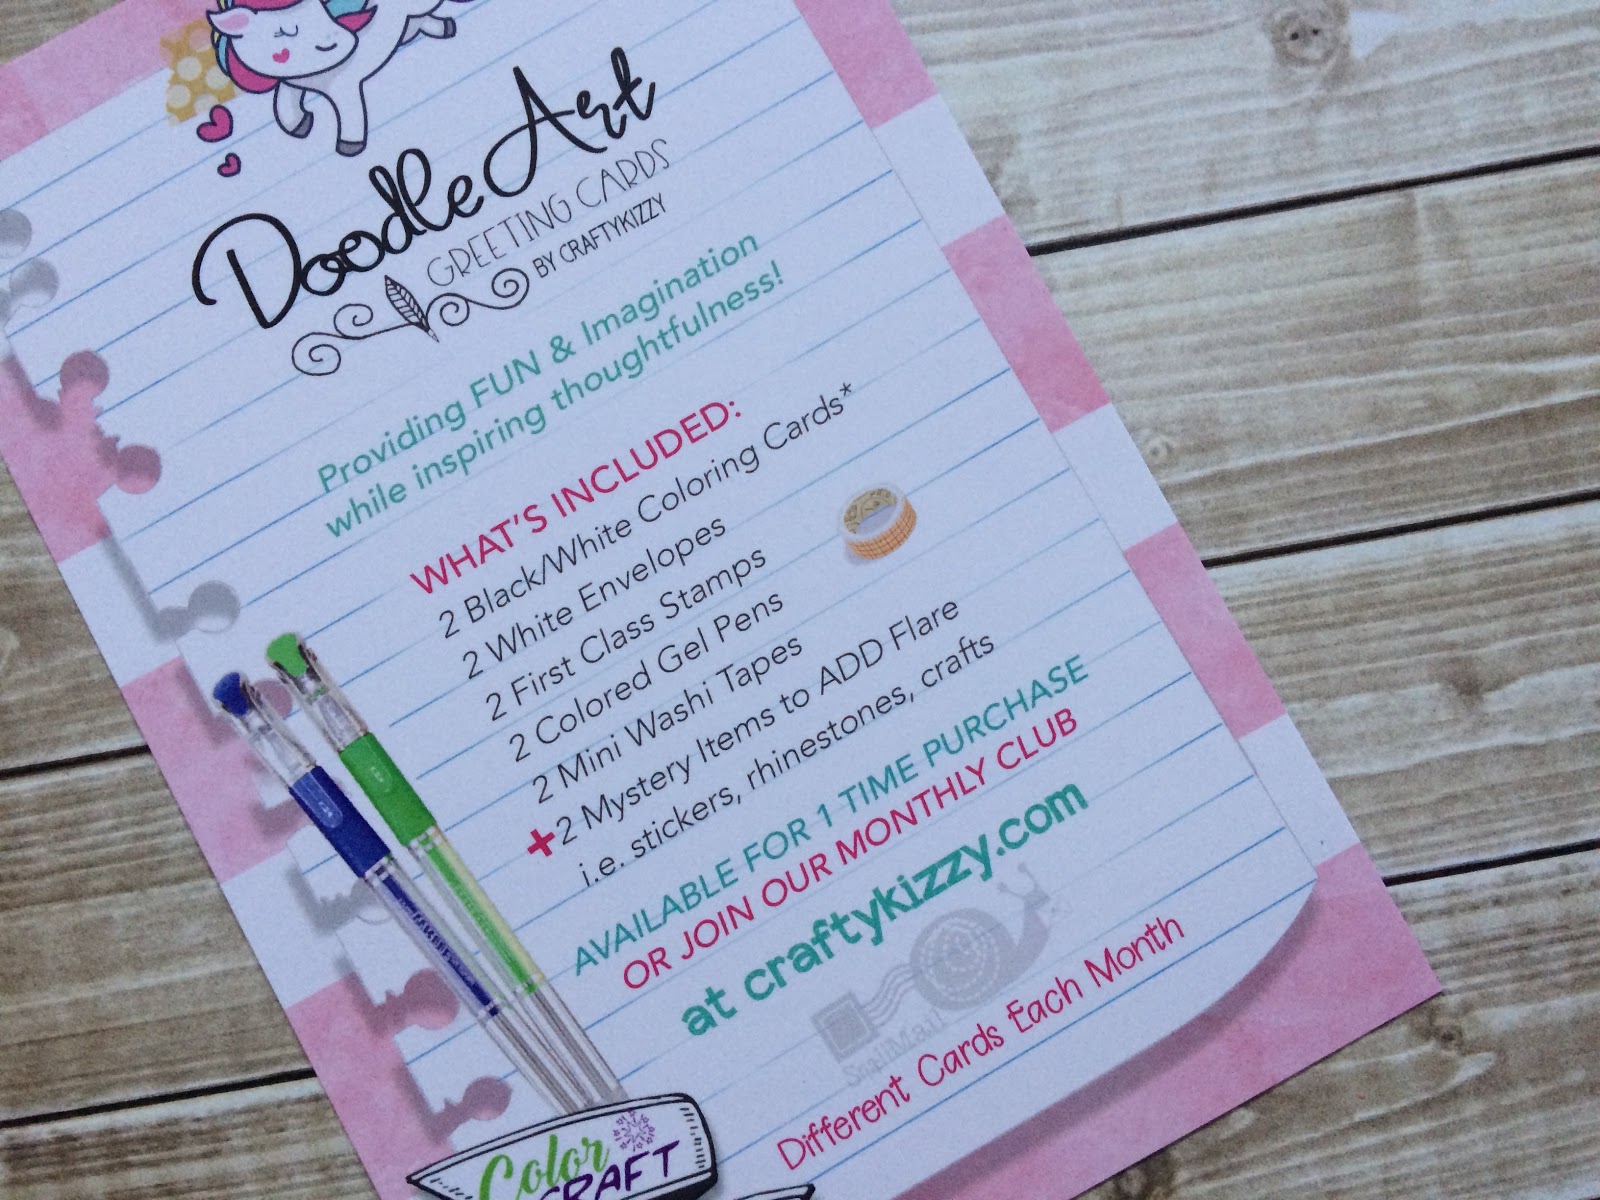 Doodle Art
GREETING CARDS
BY CRAFTYKIZZY
Providing FUN & Imagination
while inspiring thoughtfulness!
WHAT'S INCLUDED:
2 Black/White Coloring Cards*
2 White Envelopes
2 First Class Stamps
2 Colored Gel Pens
2 Mini Washi Tapes
+2 Mystery Items to ADD Flare
i.e. stickers, rhinestones, crafts
AVAILABLE FOR 1 TIME PURCHASE
OR JOIN OUR MONTHLY CLUB
at craftykizzy.com
Snail Mail
Different Cards Each Month
Color
CRAFT